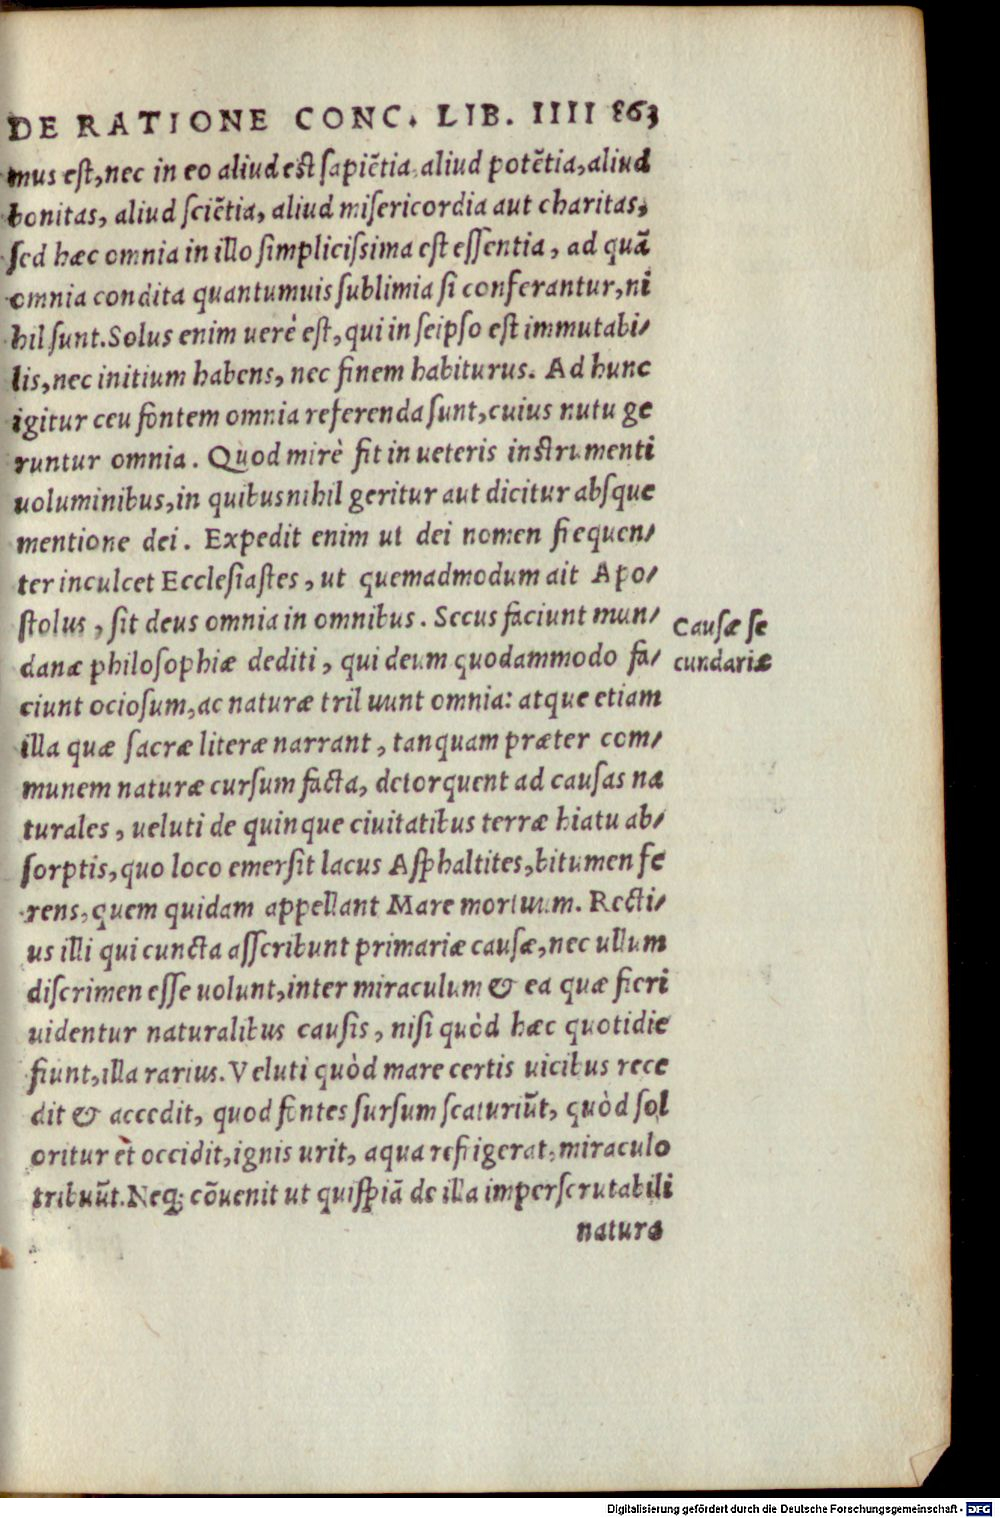 DE RATIONE CONC. LIB. IIII 863
mus est, nec in eo aliud est sapiẽtia, aliud potẽtia, aliud
bonitas, aliud sciẽtia, aliud misericordia aut charitas,
sed hæc omnia in illo simplicissima est essentia, ad quã
omnia condita quantumuis sublimia si conferantur, ni
hil sunt. Solus enim uerè est, qui in seipso est immutabi/
lis, nec initium habens, nec finem habiturus. Ad hunc
igitur ceu fontem omnia referenda sunt, cuius nutu ge
runtur omnia. Quod mirè fit in ueteris instrumenti
uoluminibus, in quibus nihil geritur aut dicitur absque
mentione dei. Expedit enim ut dei nomen frequen/
ter inculcet Ecclesiastes, ut quemadmodum ait Apo/
stolus, sit deus omnia in omnibus. Secus faciunt mun/
danæ philosophiæ dediti, qui deum quodammodo fa/
ciunt ociosum, ac naturæ tribuunt omnia: atque etiam
illa quæ sacræ literæ narrant, tanquam præter com/
munem naturæ cursum facta, detorquent ad causas na
turales, ueluti de quinque ciuitatibus terræ hiatu ab/
sorptis, quo loco emersit lacus Asphaltites, bitumen fe
rens, quem quidam appellant Mare mortuum. Recti/
us illi qui cuncta asscribunt primariæ causæ, nec ullum
discrimen esse uolunt, inter miraculum & ea quæ fieri
uidentur naturalibus causis, nisi quòd hæc quotidie
fiunt, illa rarius. Veluti quòd mare certis uicibus rece
dit & accedit, quod fontes sursum scaturiũt, quòd sol
oritur et occidit, ignis urit, aqua refrigerat, miraculo
tribuũt. Neq; cõuenit ut quispiã de illa imperscrutabili
natura
Causæ se
cundariæ
Digitalisierung gefördert durch die Deutsche Forschungsgemeinschaft - DFG